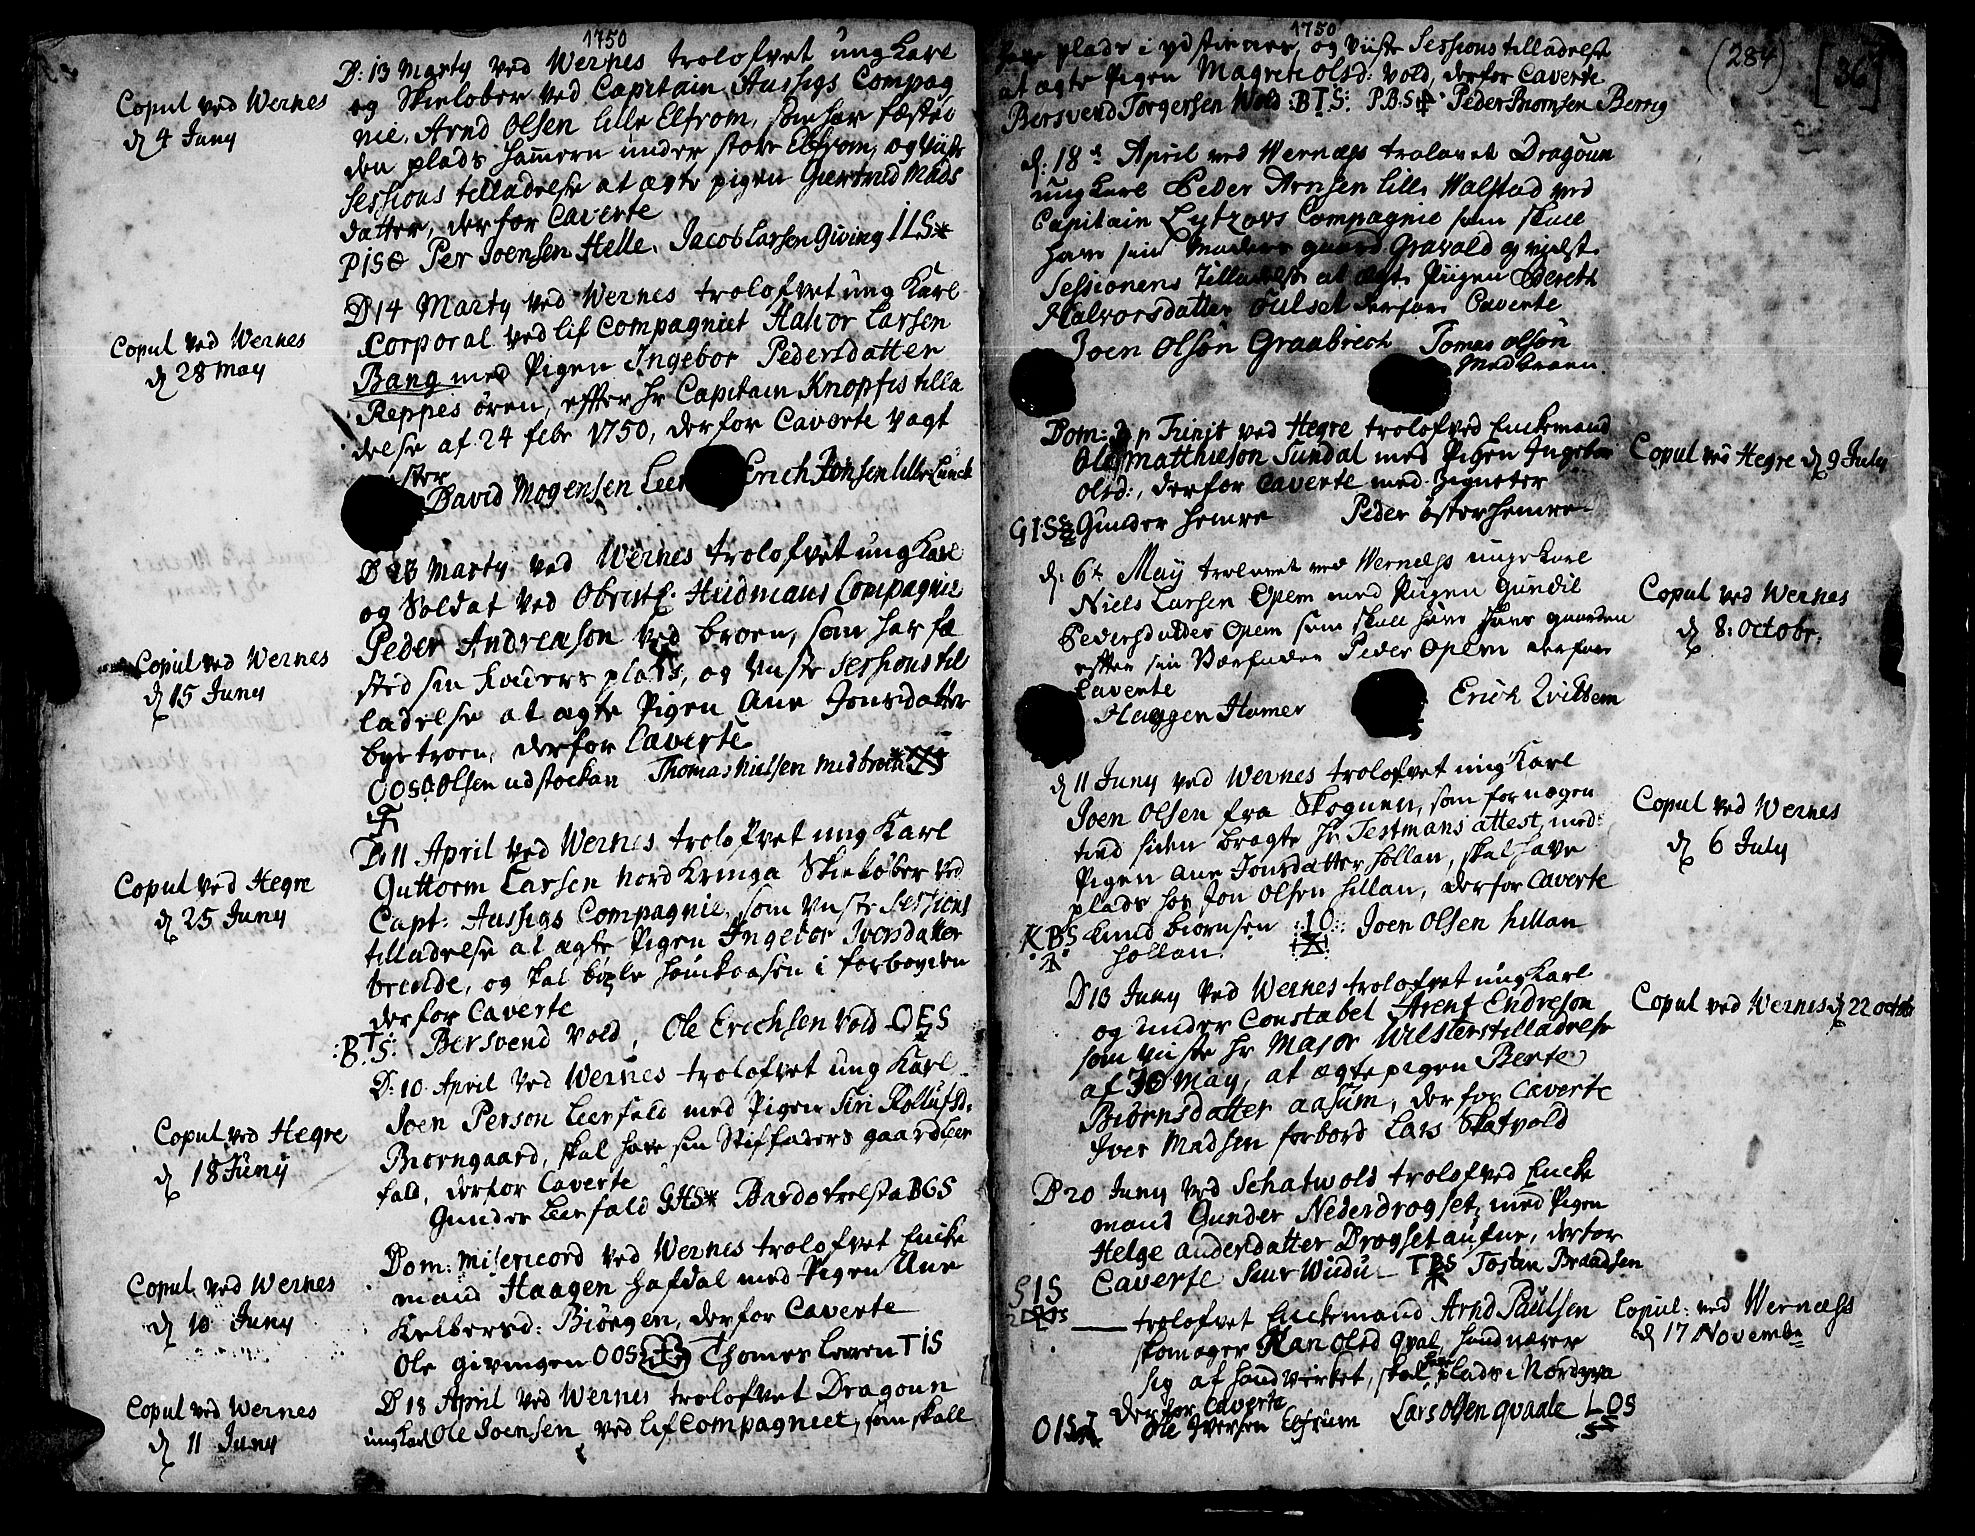 1750
D: 13 Marty ved Wernes trolofvet ung Karl
og Skieløber ved Capitain Aussigs Compag
nie, Arnd Olsen lille Elfrom, som har fæstet
den plads hammern under store Elfrom, og viiste
Sessions tilladelse at ægte pigen Giertrud Mads
datter, derfor Caverte
PISE Per Joensen Helle. Jacob Larsen Giving ILS
Copul ved Wernes
d 4 Juny
D 14 Marty ved Wernes trolofvet ung Karl
Corporal ved lif Compagniet Halvor Larsen
Bang med Pigen Ingebor Pedersdatter
Reppes øren, effter hr Capitain Knopfis tilla
delse af 24 febr 1750, derfor Caverte Vagt
mester
David Mogensen Leer Erich Jonsen lille Lunck
Copul ved Wernes
d 28 May
D 23 Marty ved Wernes trolofvet ung Karl
og Soldat ved Obristl: Hudmans Compagnie
Peder Andreason ved broen, som har fæ
sted sin faders plads, og viiste Sessions til
ladelse at ægte Pigen Ane Jonsdatter
bye troen, derfor Caverte
OOS Olsen udstockan Thomas Nielsen medbroen
Copul ved Wernes
d 15 Juny
D. 11 April ved Wernes trolofvet ung Karl
Guttorm Larsen Nord Kringa Skieløber ved
Capt: Aussigs Compagnie, som viiste Sessions
tilladelse at ægte Pigen Ingebor Iversdatter
brende, og skal bøxle homkaasen i forbogden
derfor Caverte
:B.T.S: Bersvend Vold, Ole Erichsen Vold OES
Copul ved Hegre
d 25 Juny
D: 10 April ved Wernes trolofvet ung Karl
Joen Person Leerfald med Pigen Siri Rollufsd.
Biorngaard, skal have sin Stiffaders gaard Leer
fald, derfor Caverte
Gunder Leerfald GHS Bardo trelsta BGS
Copul ved Hegre
d 18 Juny
Dom: Misericord ved Wernes trolofvet Encke
mand Haagen Hafdal med Pigen Ane
Kelbersd: Biørgen, derfor Caverte
Ole givingen OOS Thomes Leeren TIS
Copul ved Wernes
d 10 Juny
D 18 April ved Wernes trolofvet Dragoun
ung Karl Ole Joensen ved lif Compagniet, som skall
Copul ved Wernes
d 11 Juny
1750
(284) [36]
have plads i ydstienes, og viiste Sessions tilladelse
at ægte Pigen Magrete Olsd: Vold, derfor Caverte
Bersvend Torgersen Wold :BTS: P.B.S Peder Biornsen Berrig
d: 18t April ved Wernæss trolovet Dragoun
ung Karl Peder Arnsen lille Walstad ved
Capitain Lytzovs Compagnie som skall
have sin Moders gaard Gravald og viiste
Sessionens Tilladelse at ægte Pigen Bereth
Halvorsdatter Fulset derfore Caverte
Joen Olsøn Graabreck Tomas Olsøn
Medbroen.
Dom: 3 p Trinit ved Hegre trolofved Enckemand
Ole Matthieson Sundal med Pigen Ingebor
Olsd:, derfor Caverte med Zigneter
GISS Gunder Hemre Peder Østerhemre
Copul ved Hegre d 9 July
d: 6t May trolovet ved Wernæss unge Karl
Niels Larsen Opem med Pigen Gundil
Pedersdatter Opem som skall have gaarden
efter sin Værfader Peder Opem derfore
Caverte
Haagen Hamer Erich Qvittem
Copul ved Wernes
d 8: Octobr:
d 11 Juny ved Wernes trolofvet ung Karl
Joen Olsen fra Skognen, som for nogen
tiid siden bragte hr Testmans attest, med
Pigen Ane Jonsdatter Hollan, skal have
plads hos Jon Olsen Hillan, derfor Caverte
K.B.S Knud Biornsen :IO: Joen Olsen hillan
hollan
Copul ved Wernes
d 6 July
D 13 Juny ved Wernes trolofvet ung Karl
og under Constabel Arent Endreson
som viiste hr Major Wilsters tilladelse
af 30 May, at ægte pigen Berte
Biørnsdatter Aasum, derfor Caverte
Iver Madsen forbord Lars Skatvold
Copul ved Wernes d 22 Octobr
D 20 Juny ved Schatwold trolofved Encke
mand Gunder Nederdrogset, med Pigen
Helge Andersdatter Drogset aufne, derfor
Caverte Siur Wudu TBS Tosten Braadsen
SIS
trolofvet Enckemand Arnd Paulsen
skomager Kari Olsd Qval, hand nærer
sig af handverket, skal have plads i Nordgya
derfor Caverte
OIS Ole Iversen Elfrum Lars Olsen qvaale LOS
Copul: ved Wernæss
d 17 Novembr